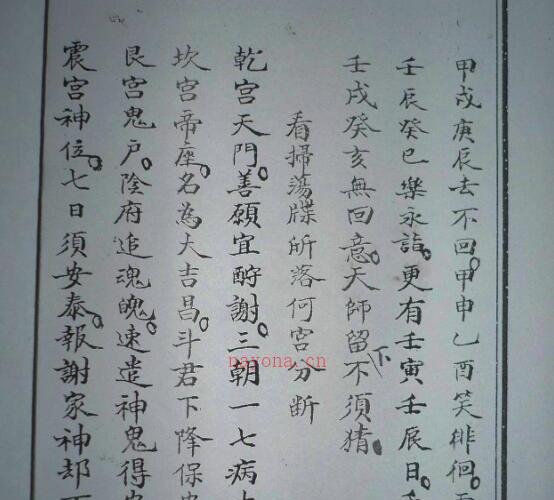 甲戌庚辰去不回。甲申乙酉笑徘徊。
壬辰癸巳樂永詣。更有壬寅壬辰日。
壬戌癸亥無回意。天師留下不須猜。
看掃蕩牒所落何宮分断
乾宮天門。善願宜酧謝。三朝一七病
坎宮帝座。名為大吉昌。斗君下降保
艮宮鬼户。陰府追魂魄。速遣神鬼得
震宮神位。七日須安泰。報謝家神却
payona.cn